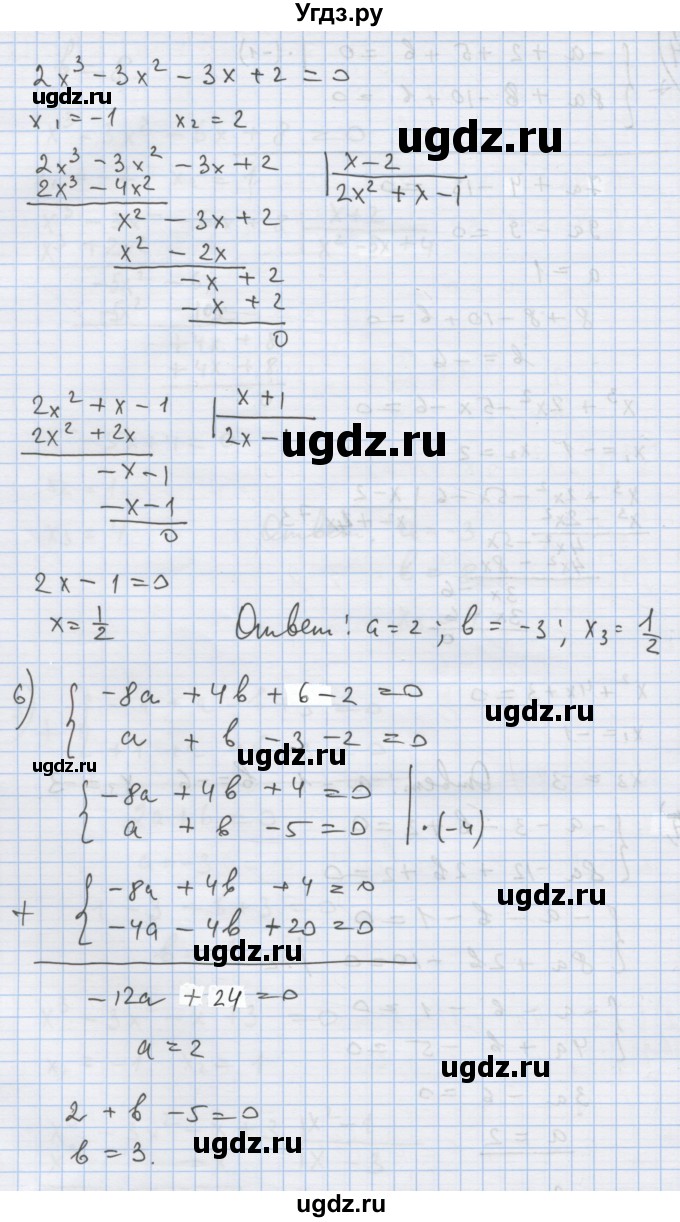 Угдз.ру
2x³ - 3x² - 3x + 2 = 0
ugdz.ru
x₁ = -1 x₂ = 2
ugdz.ru
2x³ - 3x² - 3x + 2 | x - 2
2x³ - 4x² 2x² + x - 1
x² - 3x + 2
x² - 2x
-x + 2
-x + 2
0
2x² + x - 1 | x + 1
2x² + 2x 2x -
ugdz.ru
-x - 1
-x - 1
0
2x - 1 = 0
x = 1/2 Ответ: a = 2; b = -3; x₃ = 1/2
б) { -8a + 4b + 6 - 2 = 0
ugdz.ru
a + b - 3 - 2 = 0
ugdz.ru
ugdz.ru
{ -8a + 4b + 4 = 0
a + b - 5 = 0 | · (-4)
+ { -8a + 4b + 4 = 0
ugdz.ru
-4a - 4b + 20 = 0
ugdz.ru
-12a + 24 = 0
a = 2
ugdz.ru
2 + b - 5 = 0
b = 3.
ugdz.ru
ugdz.ru